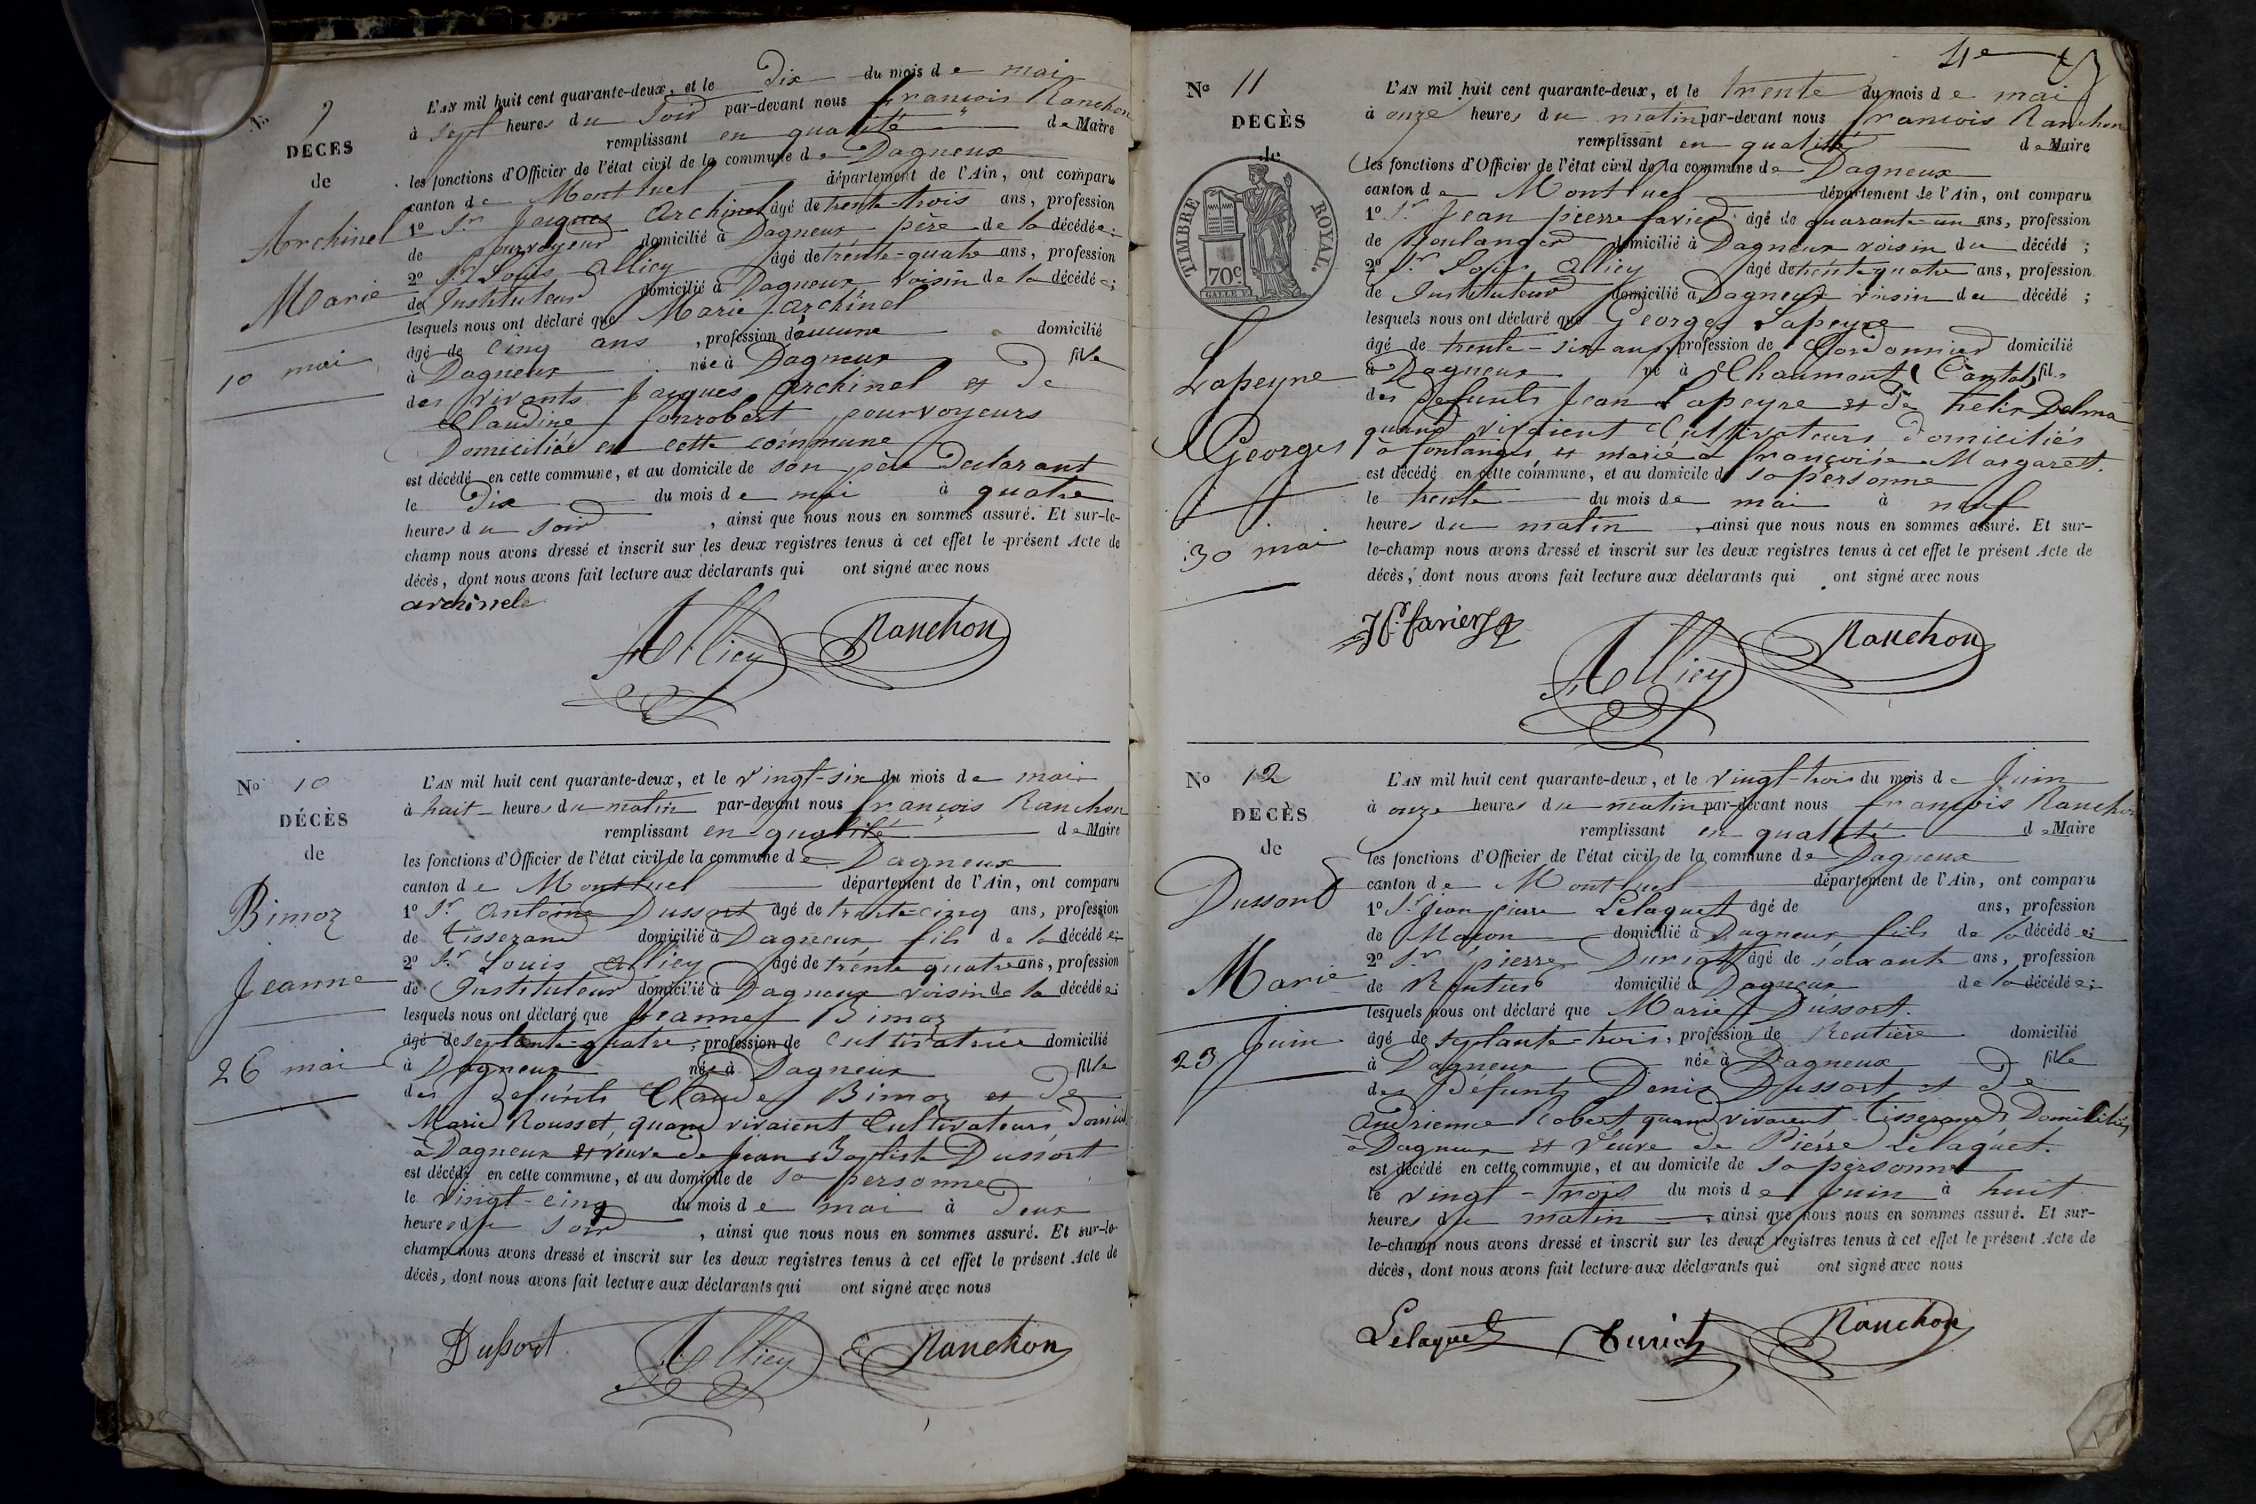 No 9
DÉCÈS
de
Archinel
Marie
10 mai
L'AN mil huit cent quarante-deux, et le dix du mois de mai
à sept heures du soir par-devant nous françois Ranchon
remplissant en qualité de Maire
les fonctions d'Officier de l'état civil de la commune de Dagneux
canton de Montluel département de l'Ain, ont comparu
1º Sr Jacques Archinel âgé de trente-trois ans, profession
de pourvoyeur domicilié à Dagneux père de la décédée;
2º Sr Louis Alliey âgé de trente-quatre ans, profession
de Instituteur domicilié à Dagneux voisin de la décédée;
lesquels nous ont déclaré que Marie Archinel
âgé de cinq ans, profession d'aucune domicilié
à Dagneux née à Dagneux fille
des vivants Jacques Archinel et de
Claudine fonrobert pourvoyeurs
Domiciliés en cette commune
est décédé en cette commune, et au domicile de son père declarant
le dix du mois de mai à quatre
heures du soir, ainsi que nous nous en sommes assuré. Et sur-le-
champ nous avons dressé et inscrit sur les deux registres tenus à cet effet le présent Acte de
décès, dont nous avons fait lecture aux déclarants qui ont signé avec nous
archinel
Alliey Ranchon
No 10
DÉCÈS
de
Bimoz
Jeanne
26 mai
L'AN mil huit cent quarante-deux, et le vingt-six du mois de mai
à huit heures du matin par-devant nous françois Ranchon
remplissant en qualité de Maire
les fonctions d'Officier de l'état civil de la commune de Dagneux
canton de Montluel département de l'Ain, ont comparu
1º Sr Antoine Dussort âgé de trente cinq ans, profession
de tisserand domicilié à Dagneux fils de la décédée;
2º Sr Louis Alliey âgé de trente quatre ans, profession
de Instituteur domicilié à Dagneux voisin de la décédée;
lesquels nous ont déclaré que Jeanne Bimoz
âgé de septante-quatre, profession de cultivatrice domicilié
à Dagneux née à Dagneux fille
des defunts Claude Bimoz et de
Marie Rousset, quand vivaient Cultivateurs, domicil
à Dagneux et veuve de Jean Baptiste Dussort
est décédé en cette commune, et au domicile de sa personne
le vingt-cinq du mois de mai à deux
heures du soir, ainsi que nous nous en sommes assuré. Et sur-le-
champ nous avons dressé et inscrit sur les deux registres tenus à cet effet le présent Acte de
décès, dont nous avons fait lecture aux déclarants qui ont signé avec nous
Dussort Alliey Ranchon
4e
No 11
DÉCÈS
de
TIMBRE ROYAL.
70c
Lapeyre
Georges
30 mai
L'AN mil huit cent quarante-deux, et le trente du mois de mai
à onze heures du matin par-devant nous françois Ranchon
remplissant en qualité de Maire
les fonctions d'Officier de l'état civil de la commune de Dagneux
canton de Montluel département de l'Ain, ont comparu
1º Sr Jean pierre favier âgé de quarante-un ans, profession
de Boulanger domicilié à Dagneux voisin du décédé;
2º Sr Louis Alliey âgé de trente quatre ans, profession
de Instituteur domicilié à Dagneux voisin du décédé;
lesquels nous ont déclaré que Georges Lapeyre
âgé de trente-six ans, profession de Cordonnier domicilié
à Dagneux né à Chaumont (Cantal) fils
des defunts Jean Lapeyre et de Delma
quand vivaient Cultivateurs domiciliés
à fontanges, et marié à françoise Margaret.
est décédé en cette commune, et au domicile de sa personne
le trente du mois de mai à neuf
heures du matin, ainsi que nous nous en sommes assuré. Et sur-
le-champ nous avons dressé et inscrit sur les deux registres tenus à cet effet le présent Acte de
décès, dont nous avons fait lecture aux déclarants qui ont signé avec nous
favier Alliey Ranchon
No 12
DÉCÈS
de
Dussort
Marie
23 Juin
L'AN mil huit cent quarante-deux, et le vingt-trois du mois de Juin
à onze heures du matin par-devant nous françois Ranchon
remplissant en qualité de Maire
les fonctions d'Officier de l'état civil de la commune de Dagneux
canton de Montluel département de l'Ain, ont comparu
1º Sr Jean pierre Lelaquet âgé de ans, profession
de Maçon domicilié à Dagneux fils de la décédée;
2º Sr pierre Duriat âgé de soixante ans, profession
de Rentier domicilié à Dagneux de la décédée;
lesquels nous ont déclaré que Marie Dussort.
âgé de septante-trois, profession de Rentière domicilié
à Dagneux née à Dagneux fille
des Défunts Denis Dussort et de
Andrienne Cobert quand vivaient tisserands Domiciliés
à Dagneux et Veuve de Pierre Lelaquet.
est décédé en cette commune, et au domicile de sa personne
le vingt-trois du mois de Juin à huit
heures du matin, ainsi que nous nous en sommes assuré. Et sur-
le-champ nous avons dressé et inscrit sur les deux registres tenus à cet effet le présent Acte de
décès, dont nous avons fait lecture aux déclarants qui ont signé avec nous
Lelaquet Ranchon